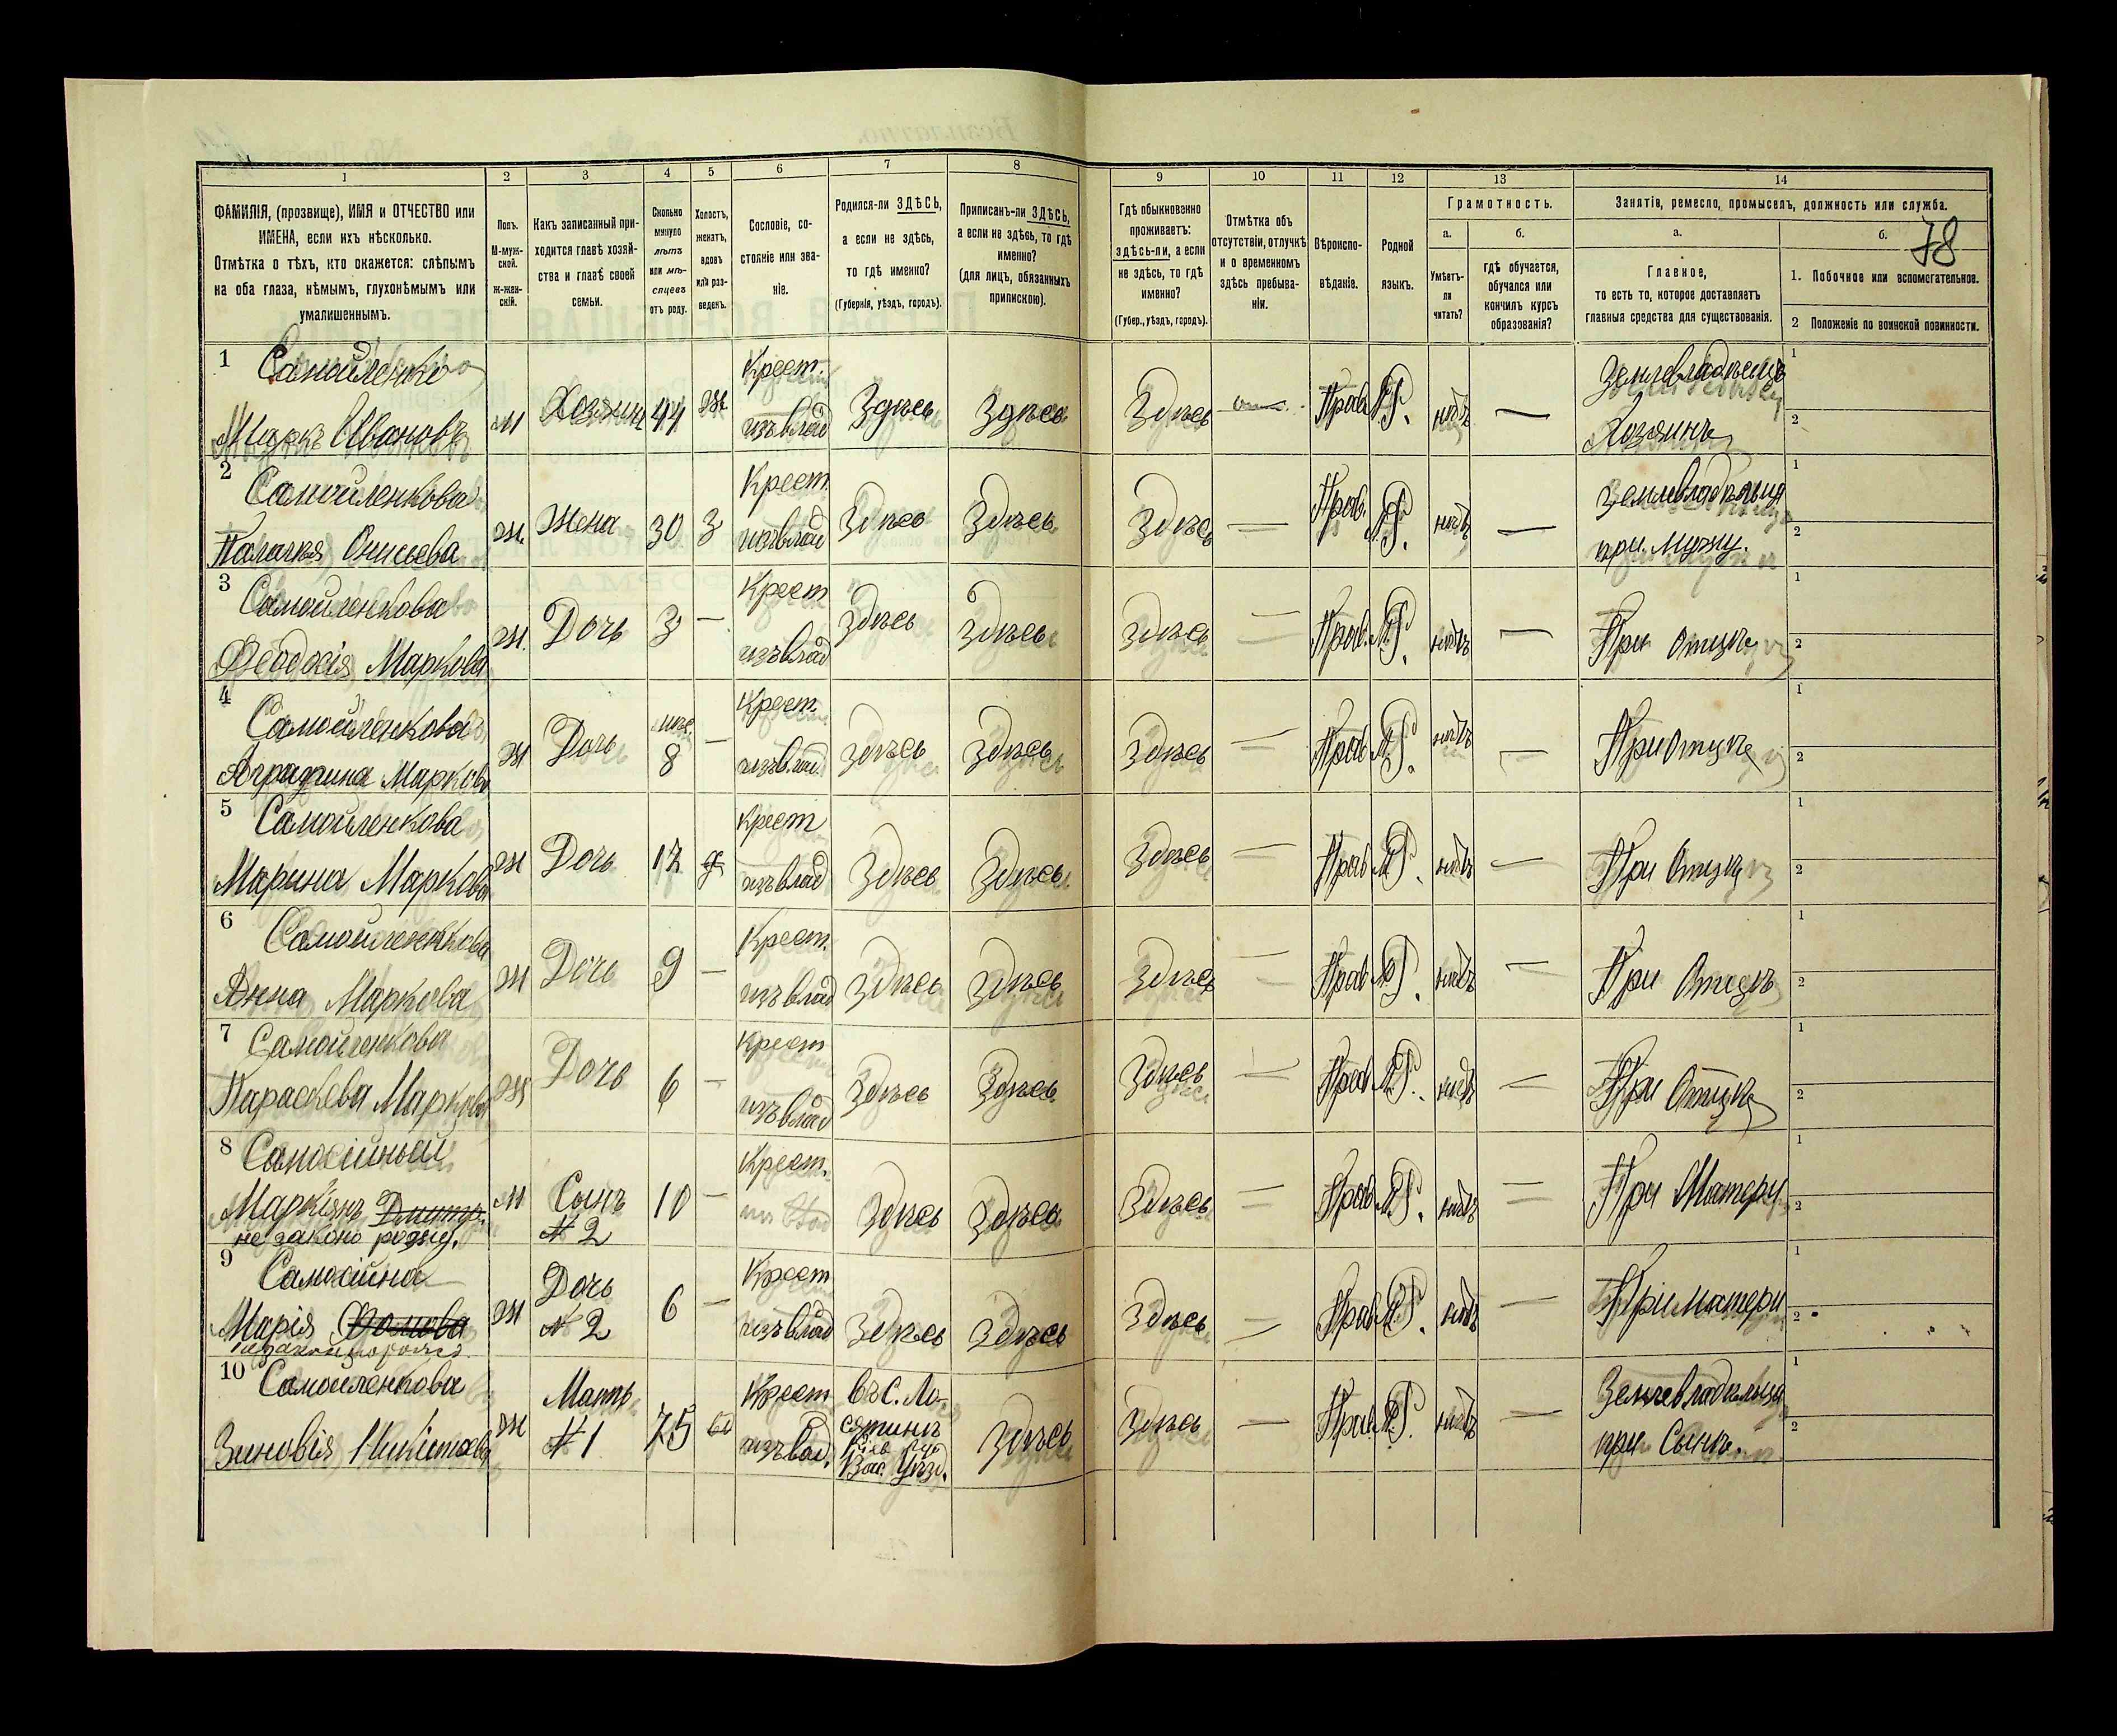 78
1 2 3 4 5 6 7 8 9 10 11 12 13 14
ФАМИЛІЯ, (прозвище), ИМЯ и ОТЧЕСТВО или
ИМЕНА, если ихъ нѣсколько.
Отмѣтка о тѣхъ, кто окажется: слѣпымъ
на оба глаза, нѣмымъ, глухонѣмымъ или
умалишеннымъ.
Полъ.
М-муж-
ской.
Ж-жен-
скій.
Какъ записанный при-
ходится главѣ хозяй-
ства и главѣ своей
семьи.
Сколько
минуло
лѣтъ
или мѣ-
сяцевъ
отъ роду.
Холостъ,
женатъ,
вдовъ
или раз-
веденъ.
Сословіе, со-
стояніе или зва-
ніе.
Родился-ли ЗДѢСЬ,
а если не здѣсь,
то гдѣ именно?
(Губернія, уѣздъ, городъ).
Приписанъ-ли ЗДѢСЬ,
а если не здѣсь, то гдѣ
именно?
(для лицъ, обязанныхъ
припискою).
Гдѣ обыкновенно
проживаетъ:
здѣсь-ли, а если
не здѣсь, то гдѣ
именно?
(Губер., уѣздъ, городъ).
Отмѣтка объ
отсутствіи, отлучкѣ
и о временномъ
здѣсь пребыва-
ніи.
Вѣроиспо-
вѣданіе.
Родной
языкъ.
Грамотность.
а.
Умѣетъ-
ли
читать?
б.
гдѣ обучается,
обучался или
кончилъ курсъ
образованія?
Занятія, ремесло, промыселъ, должность или служба.
а.
Главное,
то есть то, которое доставляетъ
главныя средства для существованія.
б.
1. Побочное или вспомогательное.
2 Положеніе по воинской повинности.
1 Самойленко Крест. Землевладѣлецъ 1
Маркъ Ивановъ М Хозяинъ 44 Ж изъ влад Здѣсь Здѣсь Здѣсь — Прав М.Р. нѣтъ — Хозяинъ 2
2 Самойленкова Крест. Землевладѣлица 1
Палагія Онисіева Ж Жена 30 З изъ влад Здѣсь Здѣсь Здѣсь — Прав. М.Р. нѣтъ — при мужу. 2
3 Самойленкова Крест 1
Феодосія Маркова Ж. Дочь 3 — изъ влад Здѣсь Здѣсь Здѣсь — Прав. М.Р. нѣтъ — При Отцѣ 2
4 Самойленкова мѣс. Крест. 1
Агрипина Маркова Ж Дочь 8 — изъ влад. Здѣсь Здѣсь Здѣсь — Прав М.Р. нѣтъ — При Отцѣ 2
5 Самойленкова Крест 1
Марина Маркова Ж Дочь 12 изъ влад Здѣсь Здѣсь Здѣсь — Прав М.Р. нѣтъ — При Отцѣ 2
6 Самойленкова Крест. 1
Анна Маркова Ж Дочь 9 — изъ влад Здѣсь Здѣсь Здѣсь — Прав М.Р. нѣтъ — При Отцѣ 2
7 Самойленкова Крест 1
Параскева Маркова Ж Дочь 6 — изъ влад Здѣсь Здѣсь Здѣсь — Прав М.Р. нѣтъ — При Отцѣ 2
8 Самосійный Крест. 1
Маркіянъ Дмитр. М Сынъ 10 — Здѣсь Здѣсь Здѣсь — Прав М.Р. нѣтъ — При Матери 2
не законо рожд. № 2
9 Самосійна Дочь Крест 1
Марія Фомова Ж № 2 6 — изъ влад Здѣсь Здѣсь Здѣсь — Прав М.Р. нѣтъ — При матери 2
10 Самойленкова Мать Крест въ С. Ло- Землевладѣлица 1
Зиновія Ж № 1 75 вд изъ влад. сятинѣ Здѣсь Здѣсь — Прав. М.Р. нѣтъ — при Сынѣ. 2
Кіев Губ
Вас. Уѣзд.